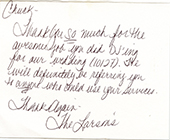 Chuck-
Thank you so much for the
awesome job you did DJ'ing
for our wedding (10/27). We
will definitely be referring you
to anyone who could use your services.
Thanks Again-
The Larson's